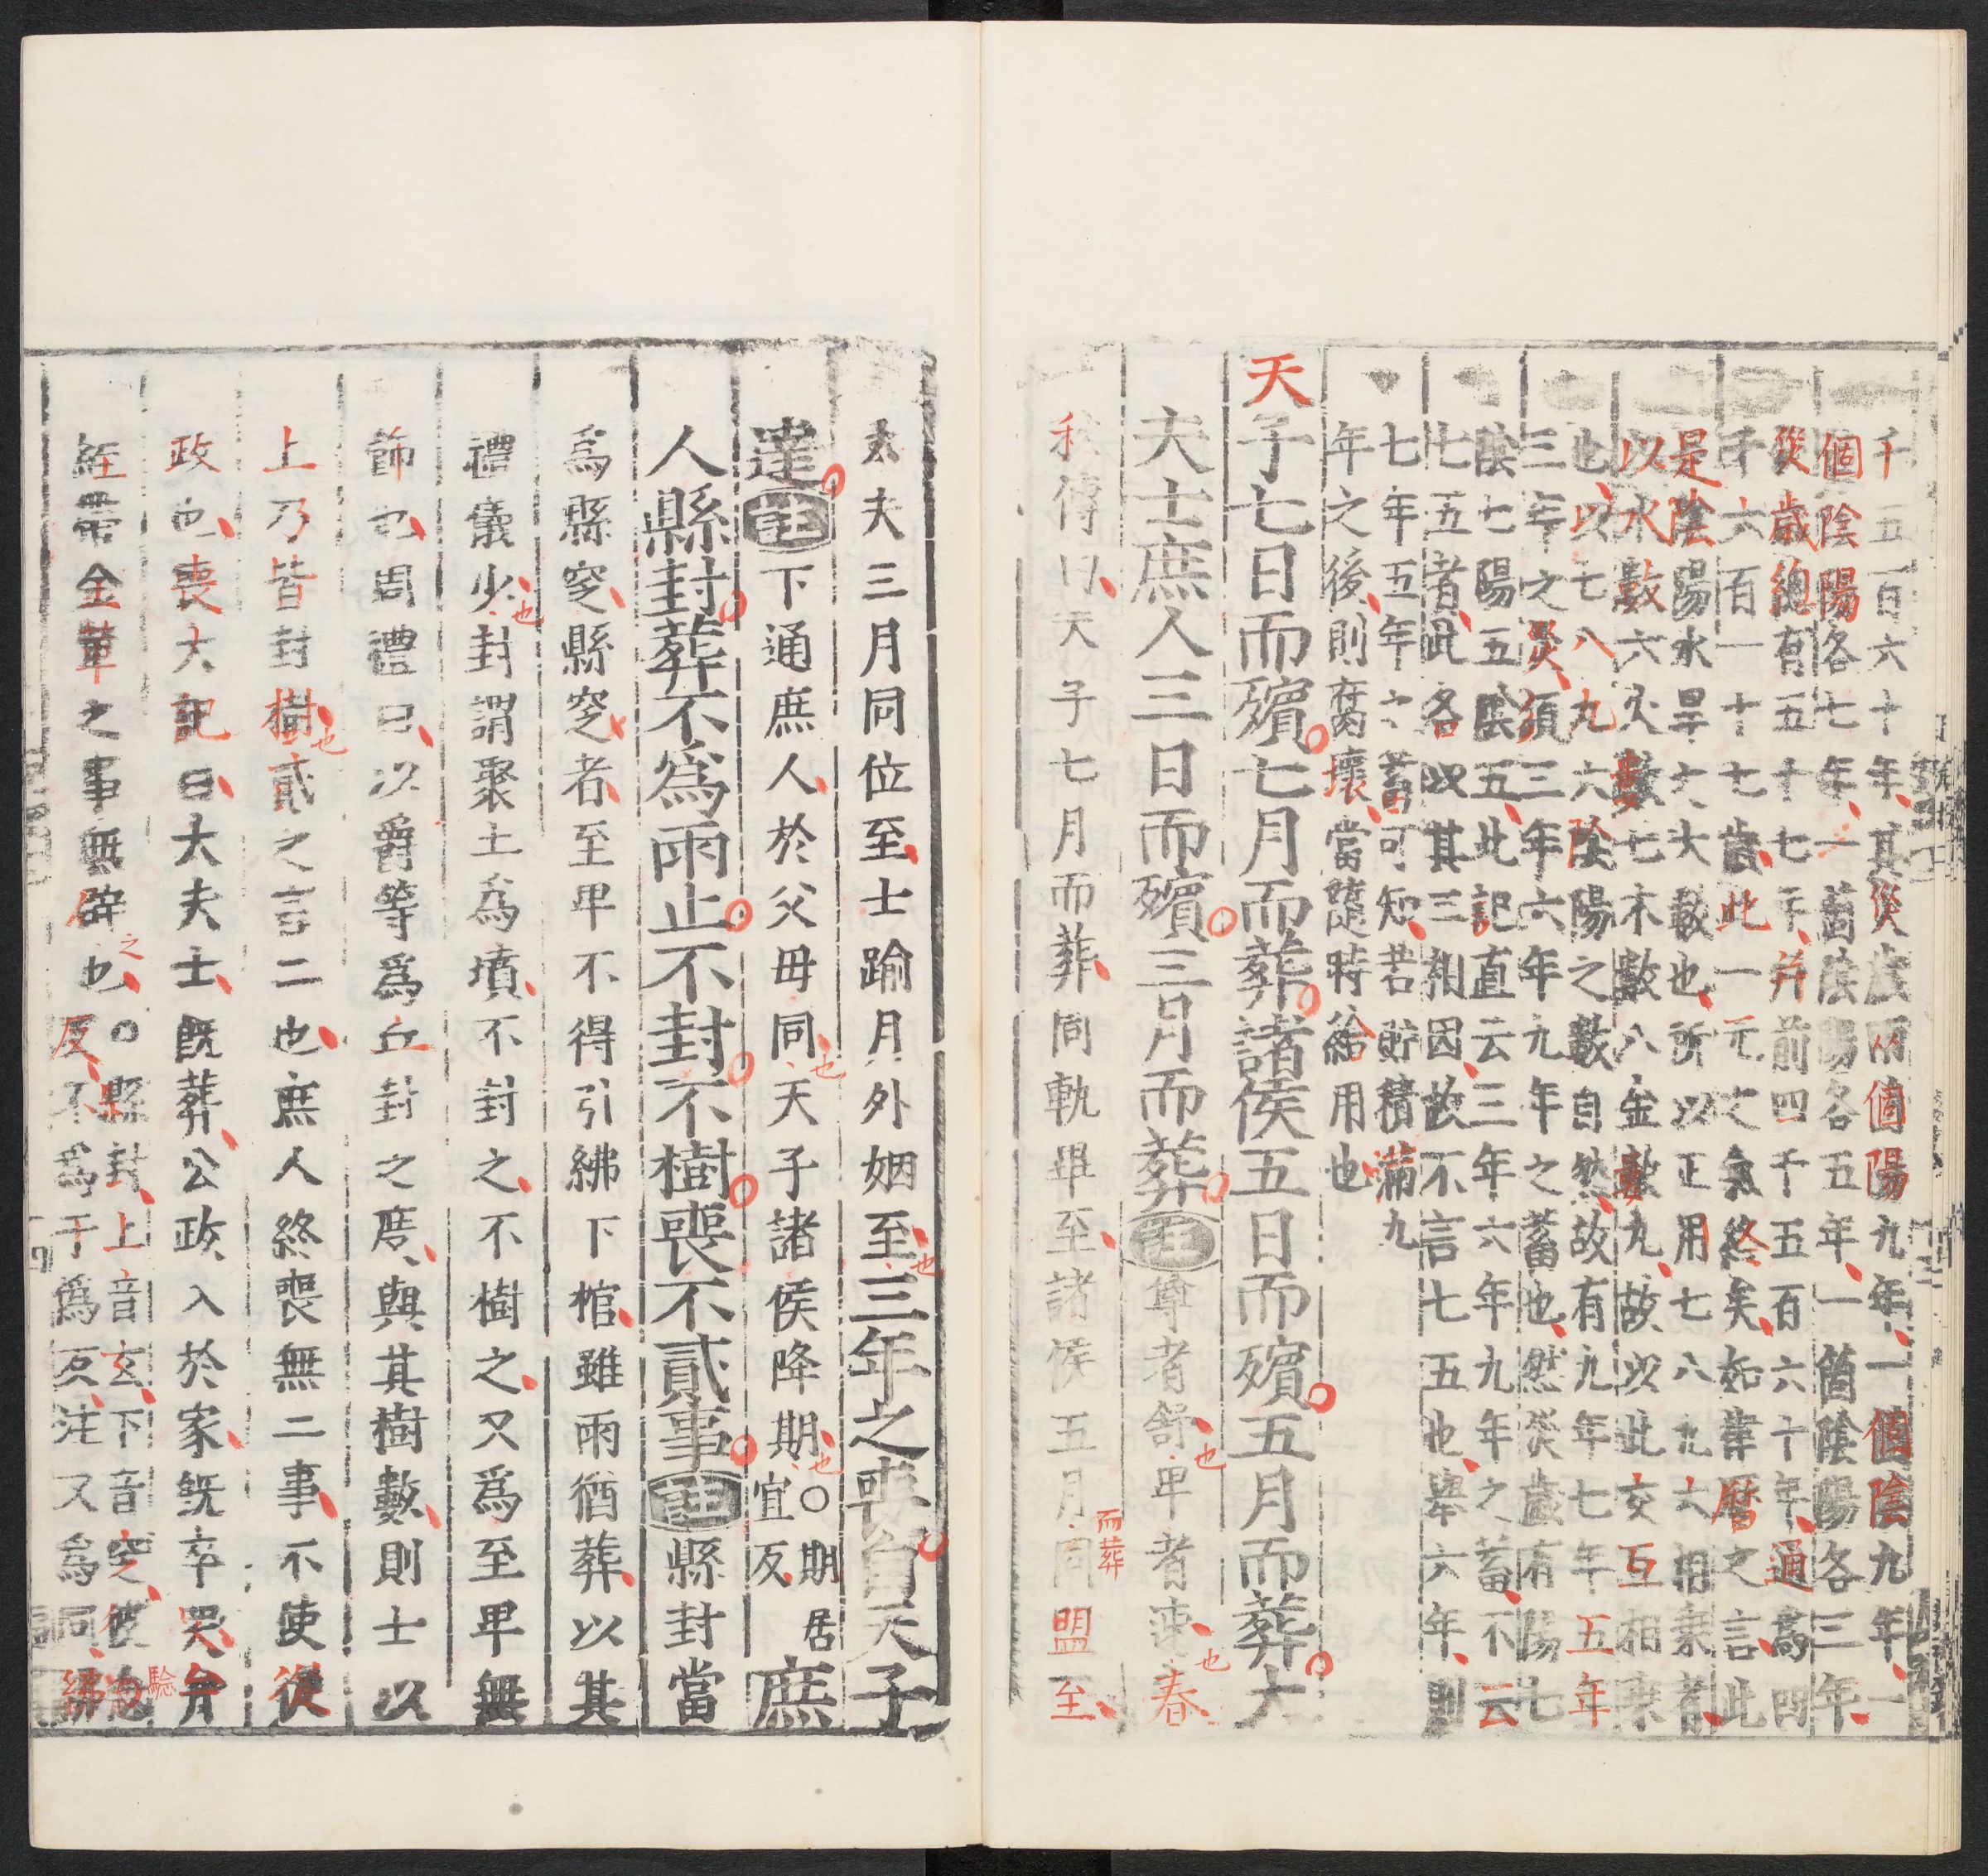 千五百六十年其災歲兩個陽九年一個陰九年一
個陰陽各七年一箇陰陽各五年一箇陰陽各三年
災歲總有五十七年并前四千五百六十年通爲四
千六百一十七歲此一元之氣終矣如律曆之言此
是陰陽水旱之大數也所以正用七八九六相乘者
以水數六火數七木數八金數九故以此交互相乘
也以七八九六陰陽之數自然故有九年七年五年
三年之災須三年六年九年之蓄也然災歲有陽七
陰七陽五陰五此記直云三年六年九年之蓄不云
七五者此各以其三相因故不言七五也舉六年則
七年五年之蓄可知若貯積滿九
年之後則腐壞當隨時給用也
天子七日而殯七月而葬諸侯五日而殯五月而葬大
夫士庶人三日而殯三月而葬註尊者舒也卑者速也春
秋傳曰天子七月而葬同軌畢至諸侯五月而葬同盟至
大夫三月同位至士踰月外姻至也三年之喪自天子
達註下通庶人於父母同也天子諸侯降期也○期居宜反庶
人縣封葬不爲雨止不封不樹喪不貳事註縣封當
爲縣窆縣窆者至卑不得引紼下棺雖雨猶葬以其
禮儀少也封謂聚土爲墳不封之不樹之又爲至卑無
飾也周禮曰以爵等爲丘封之度與其樹數則士以
上乃皆封樹也貳之言二也庶人終喪無二事不使從
政也喪大記曰大夫士既葬公政入於家既卒哭弁
絰帶金革之事無辟之也○縣封上音玄下音窆彼驗
反不爲于僞反注又爲同紼